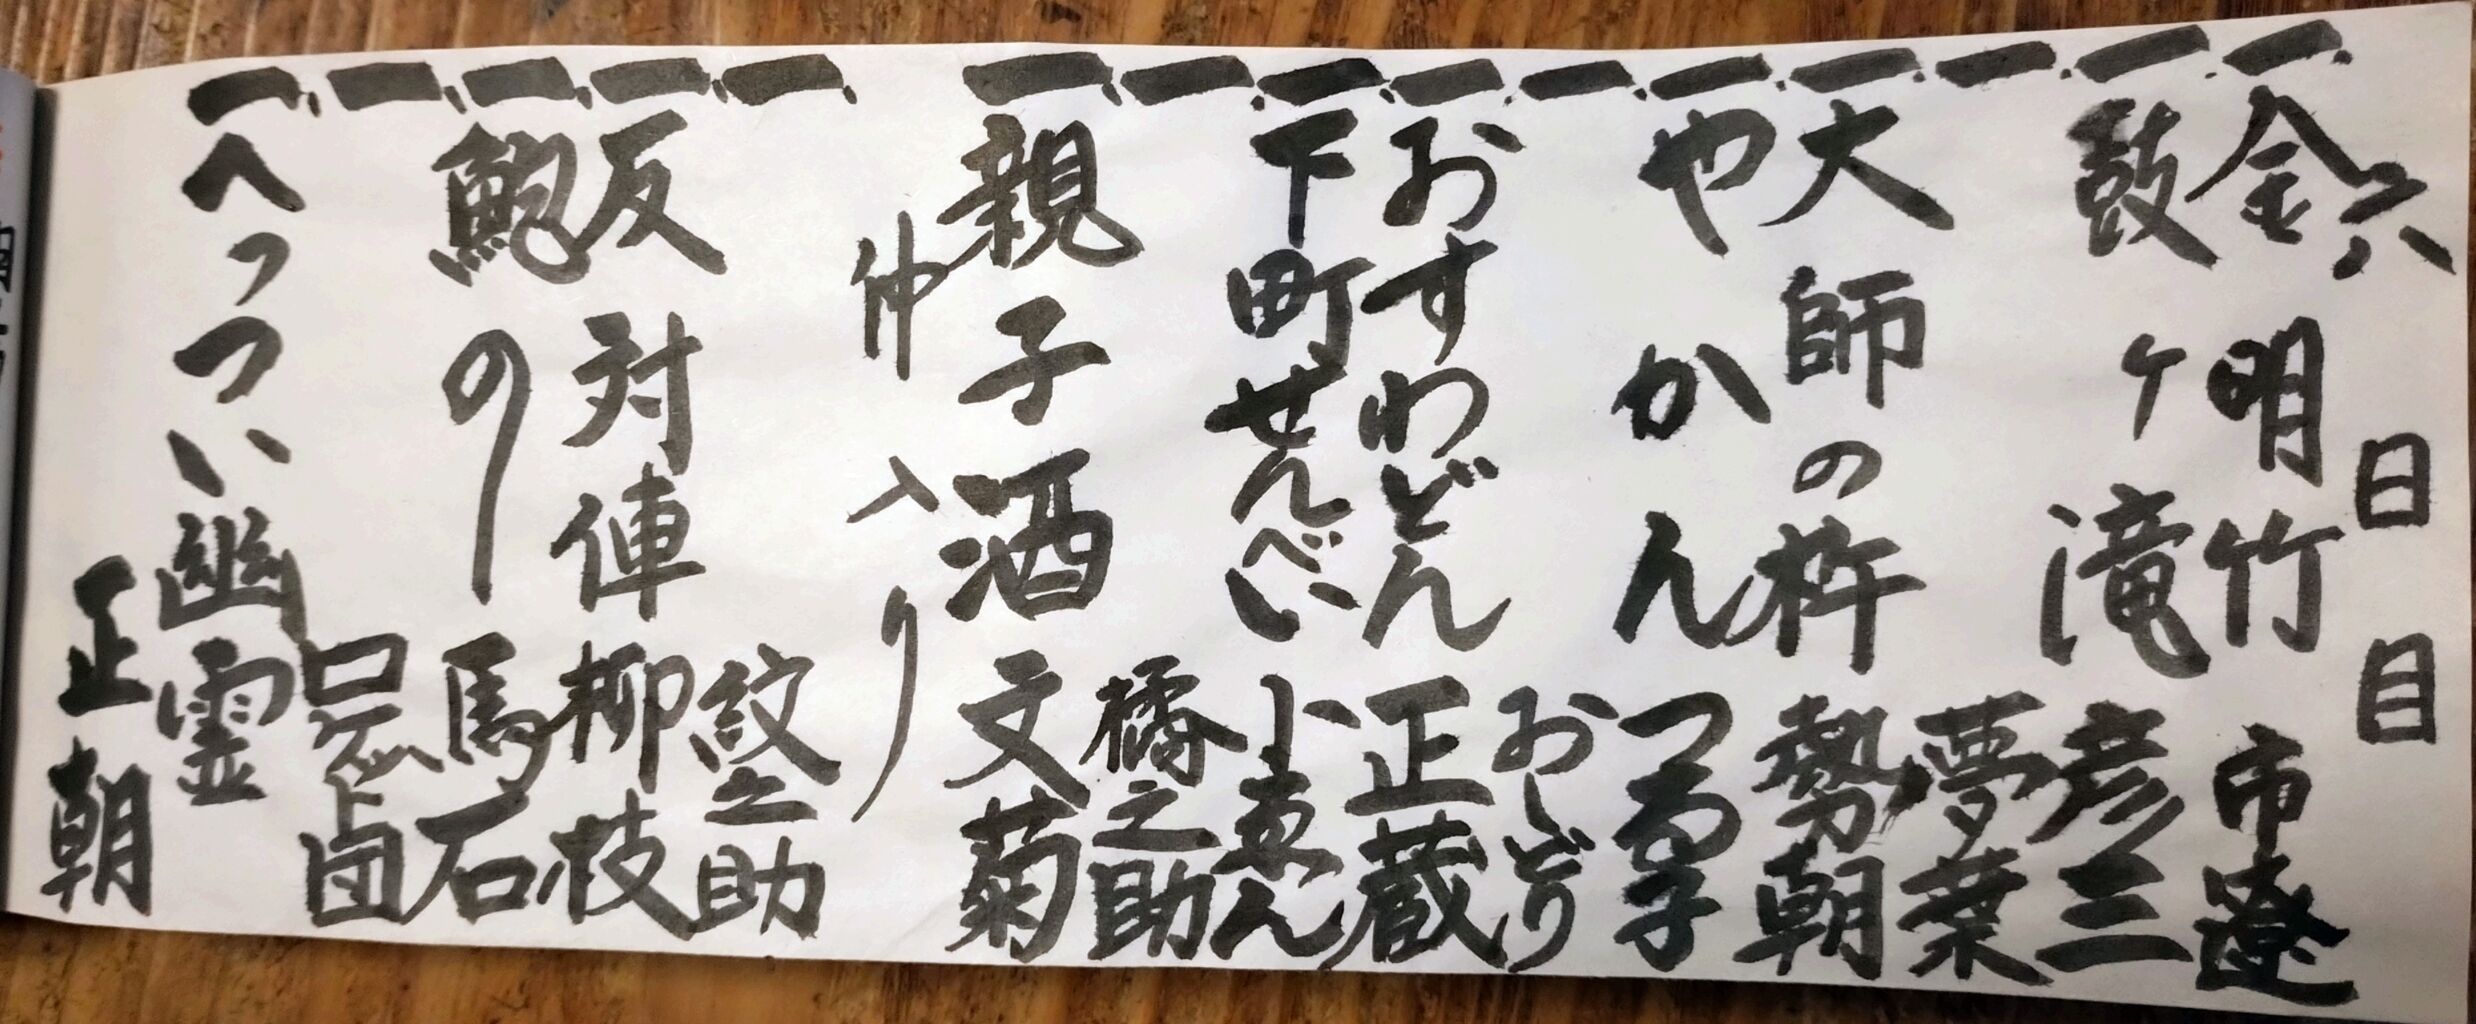 六日目
一、金明竹 市遼
一、鼓ヶ滝 彦三
一、夢葉
一、大師の杵 勢朝
一、やかん つる子
一、おしどり
一、おすわどん 正蔵
一、下町せんべい 小ゑん
一、橘之助
一、親子酒 文菊
仲入り
一、紋之助
一、反対俥 柳枝
一、鮑のし 馬石
一、ロケット団
一、へっつい幽霊 正朝